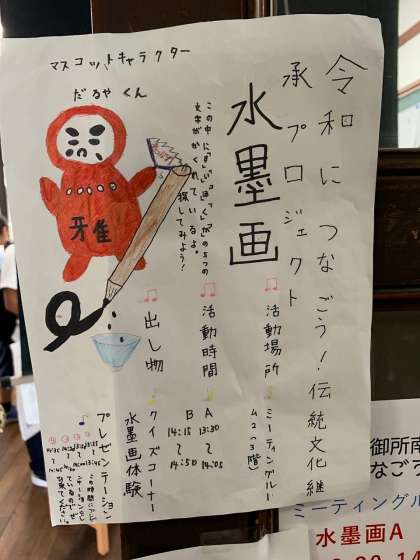 令和につなごう！伝統文化継
承プロジェクト
水墨画
マスコットキャラクター
だるやくん
この中に「す」「い」「ぼ」「く」「が」の5つの
文字がかくれているよ。
探してみよう！
雅
♫活動場所
ミーティングルー
ム2(3階)
♫活動時間
A 13:30〜14:05
B 14:15〜14:50
♫出し物
クイズコーナー
水墨画体験
♪プレゼンテーション
この時間にプレゼ
ンテーションをし
ているのでぜひ
来てください。
御所南
なごう
ミーティングル
水墨画A